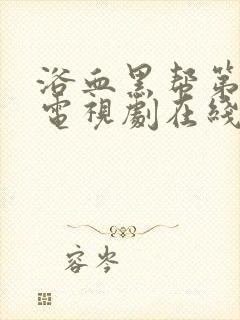 浴血黑帮第
電視劇在綫
容岑